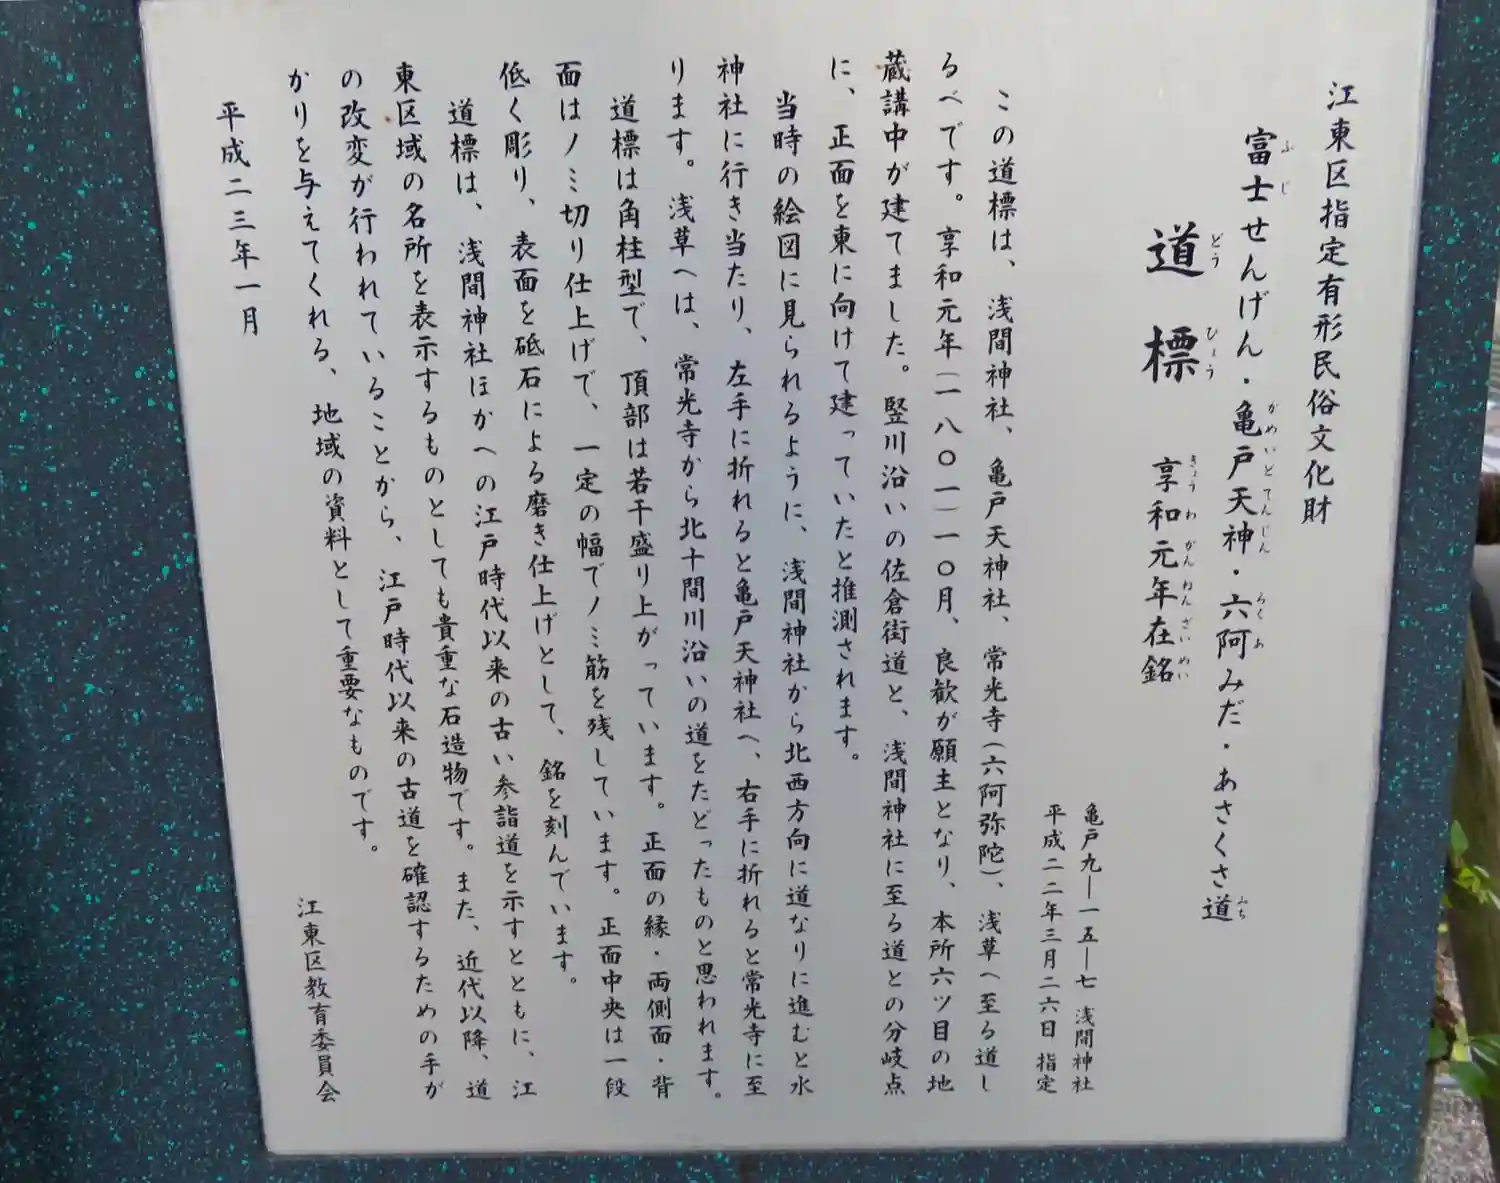 江東区指定有形民俗文化財
富士せんげん・亀戸天神・六阿みだ・あさくさ道
ふじ
かめいどてんじん
ろくあ
みち
道標 享和元年在銘
どうひょう
きょうわがんねんざいめい
亀戸九―一五―七 浅間神社
平成二二年三月二六日 指定
この道標は、浅間神社、亀戸天神社、常光寺(六阿弥陀)、浅草へ至る道し
るべです。享和元年(一八〇一)一〇月、良歓が願主となり、本所六ツ目の地
蔵講中が建てました。竪川沿いの佐倉街道と、浅間神社に至る道との分岐点
に、正面を東に向けて建っていたと推測されます。
当時の絵図に見られるように、浅間神社から北西方向に道なりに進むと水
神社に行き当たり、左手に折れると亀戸天神社へ、右手に折れると常光寺に至
ります。浅草へは、常光寺から北十間川沿いの道をたどったものと思われます。
道標は角柱型で、頂部は若干盛り上がっています。正面の縁・両側面・背
面はノミ切り仕上げで、一定の幅でノミ筋を残しています。正面中央は一段
低く彫り、表面を砥石による磨き仕上げとして、銘を刻んでいます。
道標は、浅間神社ほかへの江戸時代以来の古い参詣道を示すとともに、江
東区域の名所を表示するものとしても貴重な石造物です。また、近代以降、道
の改変が行われていることから、江戸時代以来の古道を確認するための手が
かりを与えてくれる、地域の資料として重要なものです。
平成二三年一月
江東区教育委員会